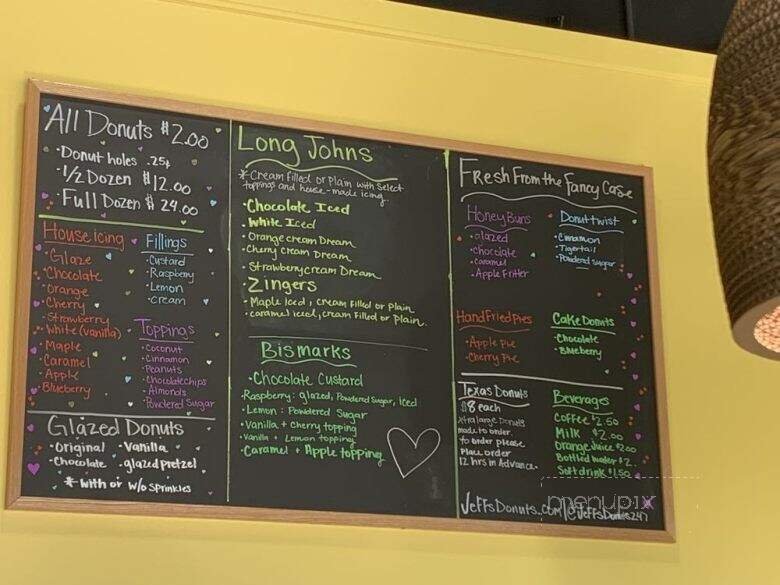 All Donuts $2.00
• Donut holes .25¢
• 1/2 Dozen $12.00
• Full Dozen $24.00
House Icing
• Glaze
• Chocolate
• Orange
• Cherry
• Strawberry
• White (vanilla)
• Maple
• Caramel
• Apple
• Blueberry
Fillings
• Custard
• Raspberry
• Lemon
• Cream
Toppings
• Coconut
• Cinnamon
• Peanuts
• Chocolate chips
• Almonds
• Powdered Sugar
Glazed Donuts
• Original • Vanilla
• Chocolate • glazed pretzel
* with or w/o sprinkles
Long Johns
* Cream filled or Plain with select
toppings and house-made icing.
• Chocolate Iced
• White Iced
• Orange cream Dream
• Cherry cream Dream
• Strawberry cream Dream
Zingers
• Maple Iced, cream filled or plain
• caramel iced, cream filled or plain.
Bismarks
• Chocolate Custard
• Raspberry: glazed, Powdered Sugar, iced
• Lemon: Powdered Sugar
• Vanilla + cherry topping
• Vanilla + Lemon topping
• Caramel + Apple topping
Fresh From the Fancy Case
Honey Buns
• glazed
• Chocolate
• Caramel
• Apple Fritter
Donut twist
• Cinnamon
• Tigertail
• Powdered sugar
Hand Fried Pies
• Apple Pie
• Cherry Pie
Cake Donuts
• Chocolate
• Blueberry
Texas Donuts
$8 each
xtra large Donuts
made to order
to order please
Place order
12 hrs in Advance.
Beverages
Coffee $2.50
Milk $2.00
Orange Juice $2.00
Bottled water $2.
Soft drink $1.50
JeffsDonuts.com/@JeffsDonuts247
menupix